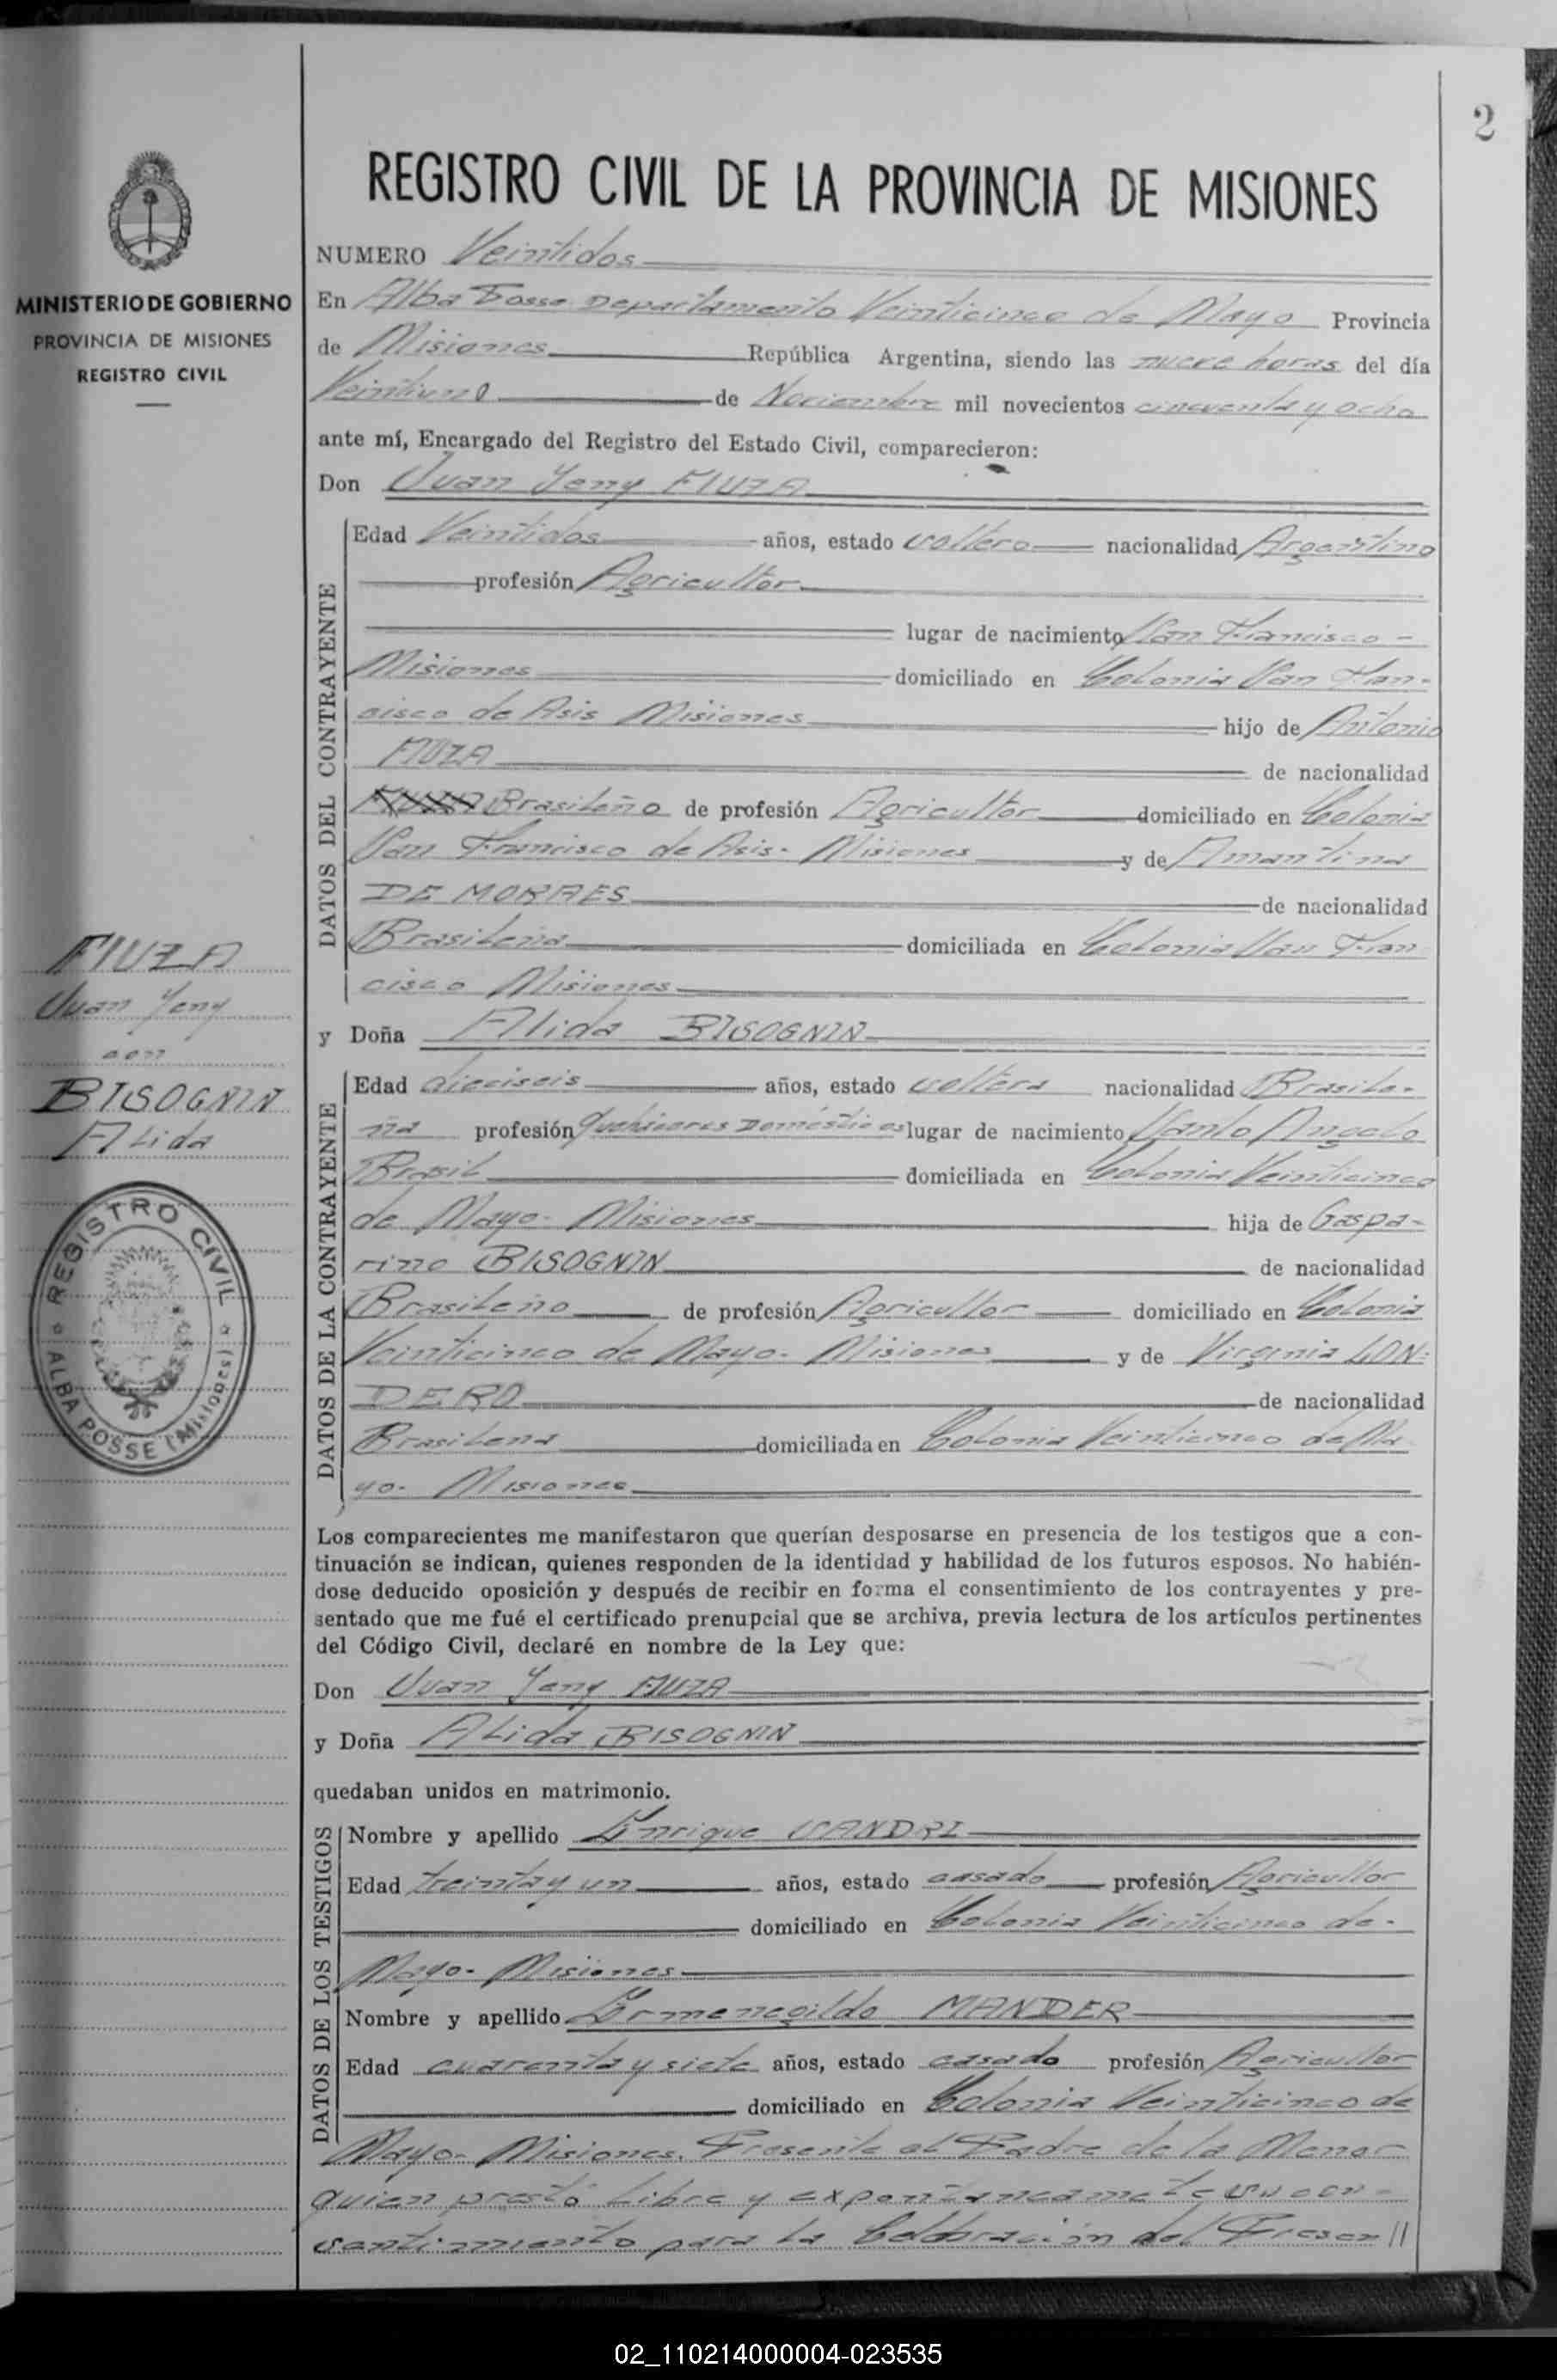 2
MINISTERIO DE GOBIERNO
PROVINCIA DE MISIONES
REGISTRO CIVIL
FIUZA
Juan Yeny
con
BISOGNIN
Alida
REGISTRO CIVIL
ALBA POSSE (Misiones)
REGISTRO CIVIL DE LA PROVINCIA DE MISIONES
NUMERO Veintidos
En Alba Posse Departamento Veinticinco de Mayo Provincia
de Misiones República Argentina, siendo las nueve horas del día
Veintiuno de Noviembre mil novecientos cincuenta y ocho
ante mí, Encargado del Registro del Estado Civil, comparecieron:
Don Juan Yeny FIUZA
DATOS DEL CONTRAYENTE
Edad Veintidos años, estado soltero nacionalidad Argentino
profesión Agricultor
lugar de nacimiento San Francisco -
Misiones domiciliado en Colonia San Fran-
cisco de Asis Misiones hijo de Antonio
FIUZA de nacionalidad
Brasileño de profesión Agricultor domiciliado en Colonia
San Francisco de Asis- Misiones y de Amantina
DE MORAES de nacionalidad
Brasileña domiciliada en Colonia San Fran
cisco Misiones
y Doña Alida BISOGNIN
DATOS DE LA CONTRAYENTE
Edad dieciseis años, estado soltera nacionalidad Brasile-
ña profesión Quehaceres Domésticos lugar de nacimiento Santo Angelo
Brasil domiciliada en Colonia Veinticinco
de Mayo- Misiones hija de Gaspa-
rino BISOGNIN de nacionalidad
Brasileño de profesión Agricultor domiciliado en Colonia
Veinticinco de Mayo- Misiones y de Virginia LON-
DERO de nacionalidad
Brasilena domiciliada en Colonia Veinticinco de Ma
yo- Misiones
Los comparecientes me manifestaron que querían desposarse en presencia de los testigos que a con-
tinuación se indican, quienes responden de la identidad y habilidad de los futuros esposos. No habién-
dose deducido oposición y después de recibir en forma el consentimiento de los contrayentes y pre-
sentado que me fué el certificado prenupcial que se archiva, previa lectura de los artículos pertinentes
del Código Civil, declaré en nombre de la Ley que:
Don Juan Yeny FIUZA
y Doña Alida BISOGNIN
quedaban unidos en matrimonio.
DATOS DE LOS TESTIGOS
Nombre y apellido Enrique SANDRI
Edad treinta y un años, estado casado profesión Agricultor
domiciliado en Colonia Veinticinco de-
Mayo- Misiones
Nombre y apellido Ermenegildo MANDER
Edad cuarenta y siete años, estado casado profesión Agricultor
domiciliado en Colonia Veinticinco de
Mayo- Misiones. Presente el Padre de la Menor
quien prestó libre y expontaneamete su con-
sentimiento para la Celebración del Presen//
02_110214000004-023535